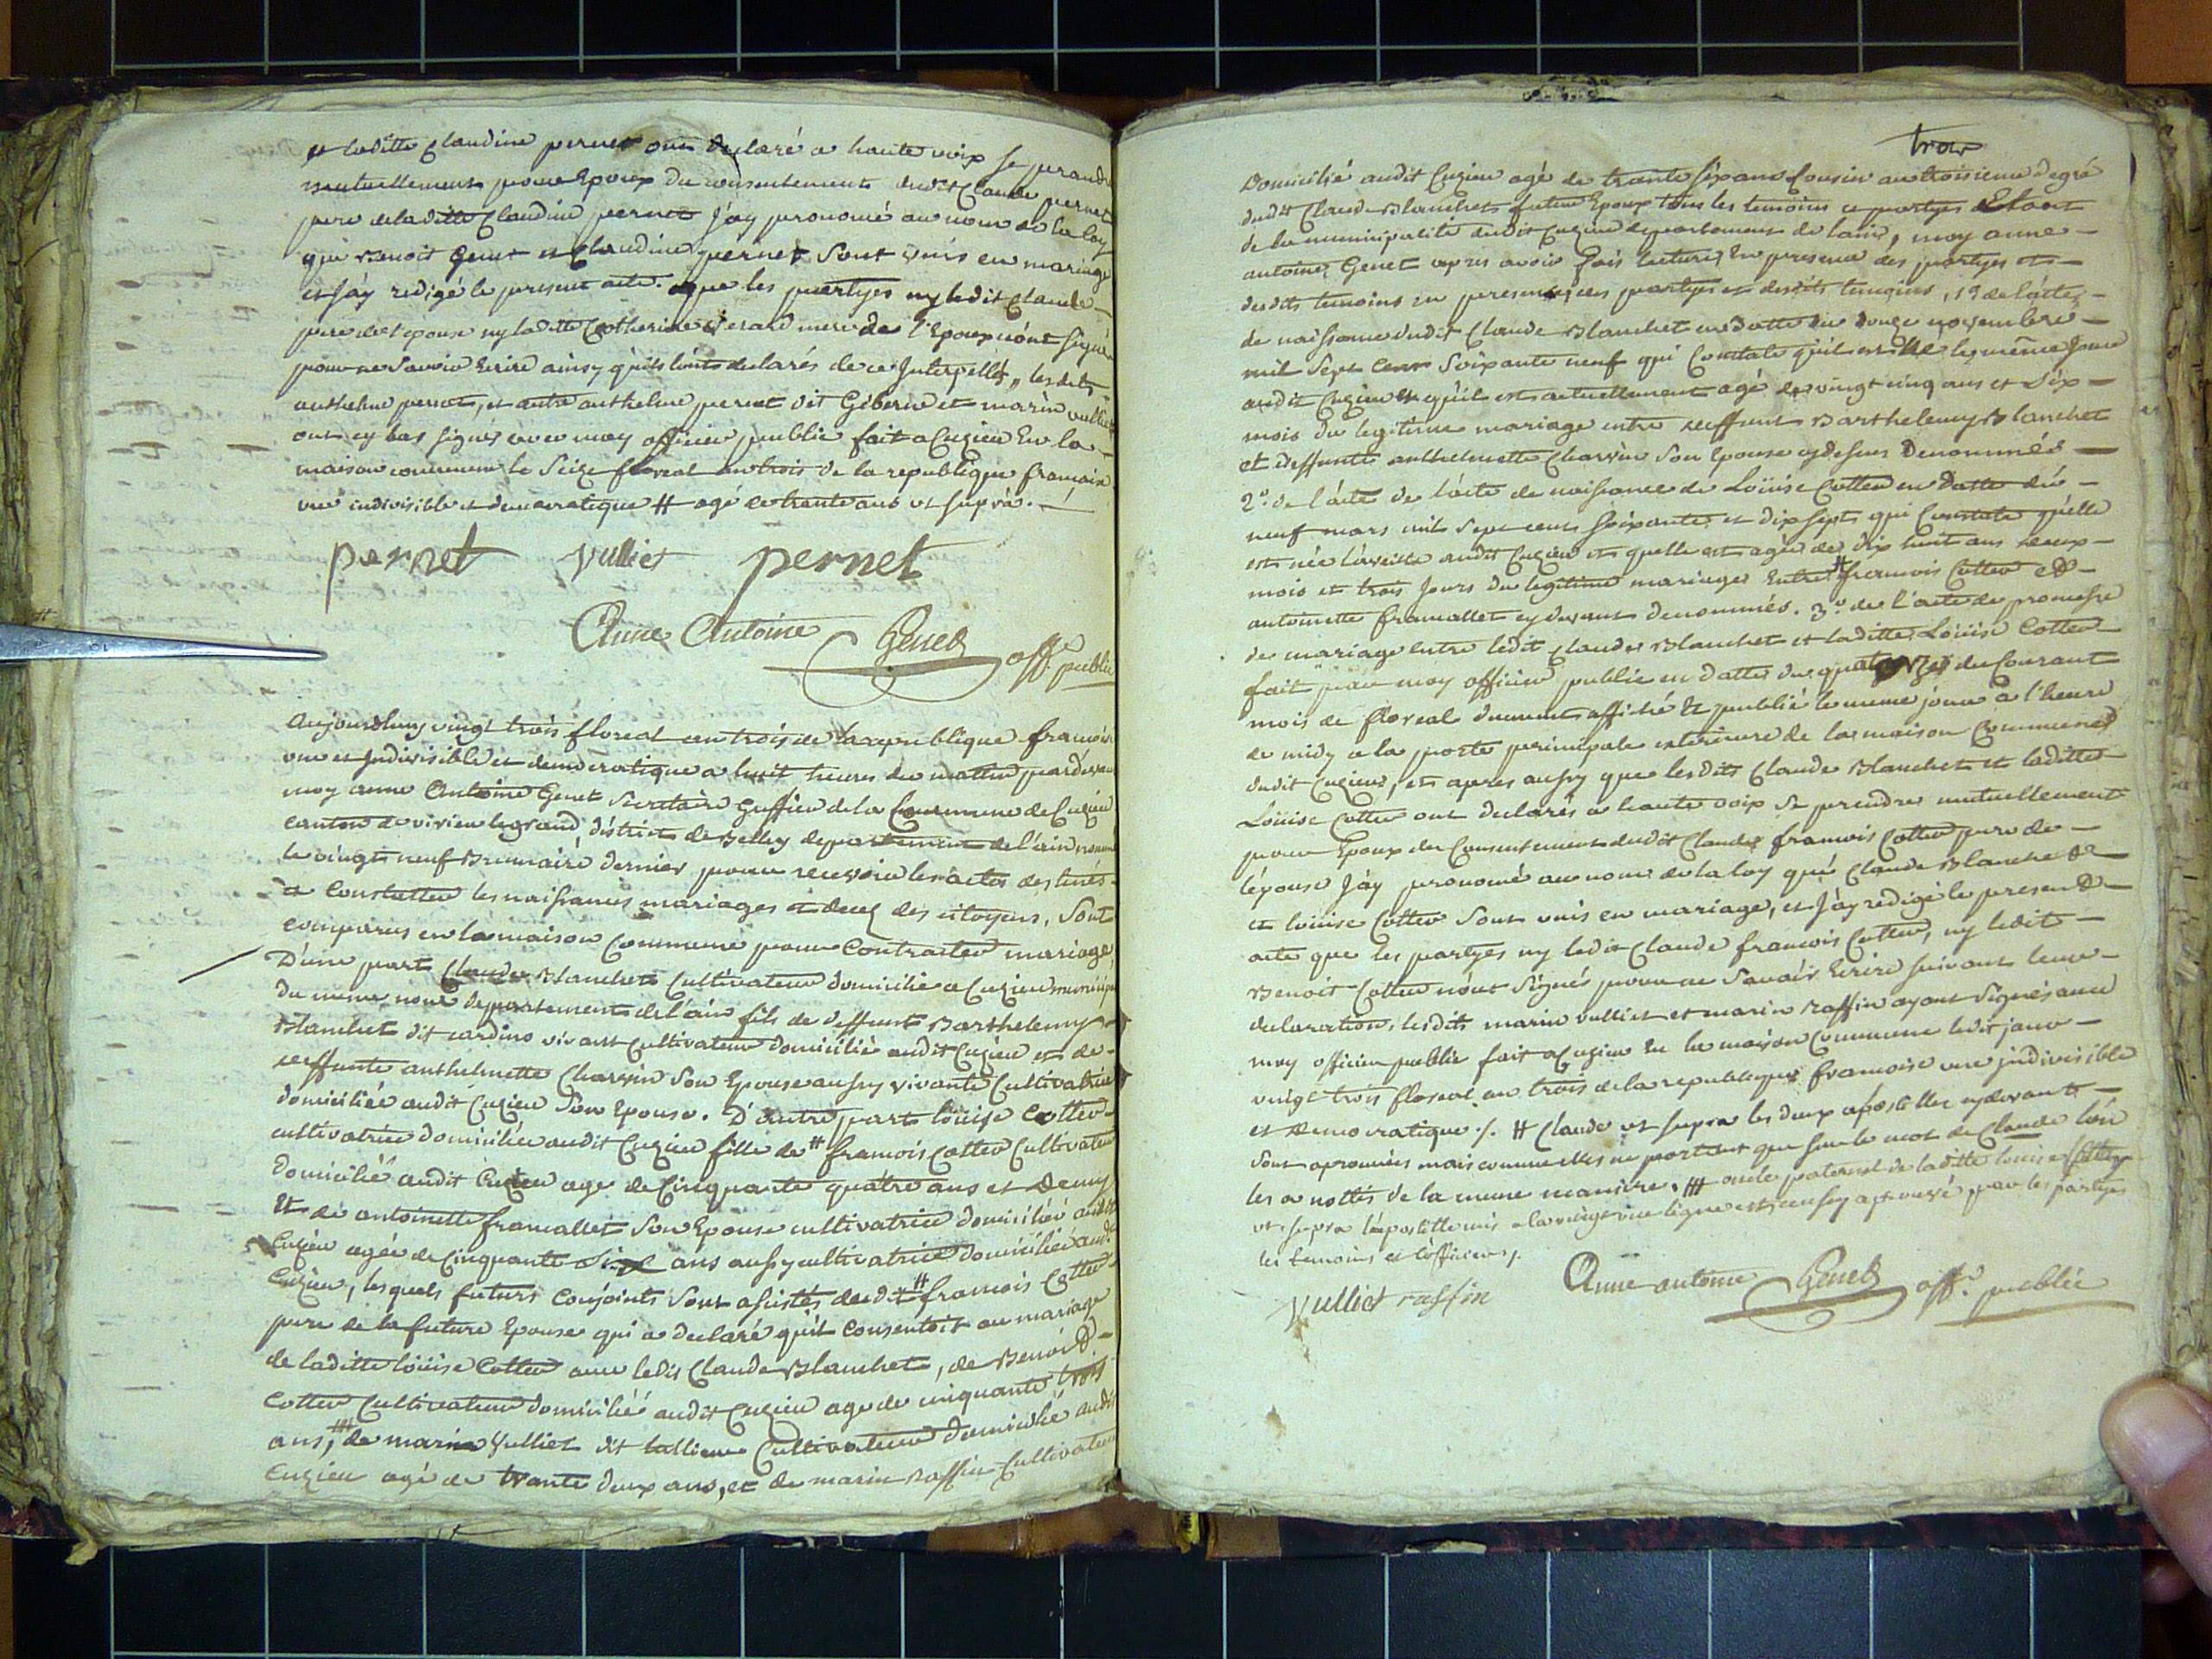 et laditte Claudine pernet ont declaré a haute voix se prandre
mutuellement pour Epoux du consentement dudit Claude pernet
pere de laditte Claudine pernet J'ay pronomé au nom de la loy
que Benoit Genet et Claudine pernet sont unis en mariage
et J'ay redigé le present acte. que les partyes ny ledit Claude
pere de l'epouse ny laditte Catherine Gerard mere de l'Epoux n'ont signé
pour ne savoir Ecrire ainsy qu'ils l'onts declarés de ce Interpellés, lesdits
anthelme pernet, et autre anthelme pernet dit Giberne et marin vulliet
ont cy bas signés avec moy officier public fait a Cuzieu En la
maison commune le Seize floreal an trois de la republique françaisse
une indivisible et democratique # agé de trante ans ut supra.
pernet vulliet pernet
Anne Antoine Genet offr public
Aujourdhuy vingt trois floreal an trois de la republique françoise
une et Indivisible et démocratique a huit heures du mattin pardevant
moy anne Antoine Genet Secretaire Greffier de la Commune de Cuzieu
canton de virieu le grand, district de Belley departement de l'ain nommé
le vingt neuf Brumaire dernier pour recevoir les actes destinés
a Constatter les naissances mariages et deces des citoyens, Sont
comparus en la maison Commune pour Contracter mariage
D'une part Claude Blanchet Cultivateur domicilié a Cuzieu municipalité
du meme nom departement de l'ain fils de deffunt Barthelemy
Blanchet dit cardino vivant Cultivateur domicilié audit Cuzieu et de
deffunte anthelmette Charvin Son Epouse aussy vivante Cultivatrice
domiciliée audit Cuzieu Son Epouse. D'autre part loüise Cotter
cultivatrice domiciliée audit Cuzieu fille de # francois Cotter Cultivateur
domicilié audit Cuzieu agé de Cinquante quatre ans et Demy
Et de antoinette framallet Son Epouse cultivatrice domiciliée audit
Cuzieu agée de Cinquante Six ans aussy cultivatrice domiciliée audt
Cuzieu, les quels futurs Conjoints Sont assistés dudit # francois Cotter
pere de la future Epouse qui a declaré qu'il Consentoit au mariage
de laditte loüise Cotter avec ledit Claude Blanchet, de Benoit
Cotter Cultivateur domicilié audit Cuzieu agé de cinquante trois
ans, # de marin Vulliet dit Cultivateur domicilié audit
Cuzieu agé de trante deux ans, et de marin Raffin Cultivateur
trois
Domicilié audit Cuzieu agé de trante six ans Cousin au troisieme degré
dudit Claude Blanchet futur Epoux tous les temoins et partyes Etant
de la municipalité dudit Cuzieu departement de l'ain, moy anne
antoine Genet apres avoir fait lecture, En presence des partyes et
desdits temoins en presence des partyes et desdits temoins, 1º de l'acte
de naissance dudit Claude Blanchet en datte du douze novembre
mil Sept Cent Soixante neuf qui Constate qu'il est Né le même Jour
audit Cuzieu et qu'il est actuellement agé de vingt cinq ans et Six
mois du legitime mariage entre deffunt Barthelemy Blanchet
et deffunte anthelmette Charvin Son Epouse cy dessus Denommés
2º. de l'acte de l'acte de naissance de Loüise Cotter en Datte du
neuf mars mil sept cent soixante et dix septs qui Constate qu'elle
est née la veille audit Cuzieu et quelle est agée de dix huit ans deux
mois et trois Jours du legitime mariage Entre # francois Cotter et
antoinette framallet cy devant denommés. 3º. de l'acte de promesse
de mariage entre ledit Claude Blanchet et laditte Loüise Cotter
fait par moy officier public en datte du quatorze du Courant
mois de floreal dument affiché et publié le meme jour à l'heure
de midy a la porte principale exterieure de la maison Commune
dudit Cuzieu, et apres aussy que lesdits Claude Blanchet et laditte
Loüise Cotter ont declarés a haute voix se prendre mutuellement
pour Epoux du Consentement dudit Claude francois Cotter pere de
l'épouse J'ay pronomé au nom de la loy que Claude Blanchet
et loüise Cotter Sont unis en mariage, et J'ay redigé le present
acte que les partyes ny ledit Claude francois Cotter, ny ledit
Benoit Cotter n'ont Signés pour ne Savoir Ecrire suivant leur
declaration, lesdits marin vulliet et marin Raffin ayant Signés avec
moy officier public fait a Cuzieu En la maison Commune ledit jour
vingt trois floreal an trois de la republique francoise une jndivisible
et Democratique ./. # Claude ut supra les deux apostilles cydevant
sont aprouvées mais comme elles ne portent que sur le mot de Claude l'on
les a nottés de la meme maniere. # oncle paternel de laditte louise Cotter
ut supra l'apostille mis a la vingt une ligne est aussy aprouvé par les partyes
les temoins et l'officier ./.
Vulliet raffin Anne antoine Genet offr. public